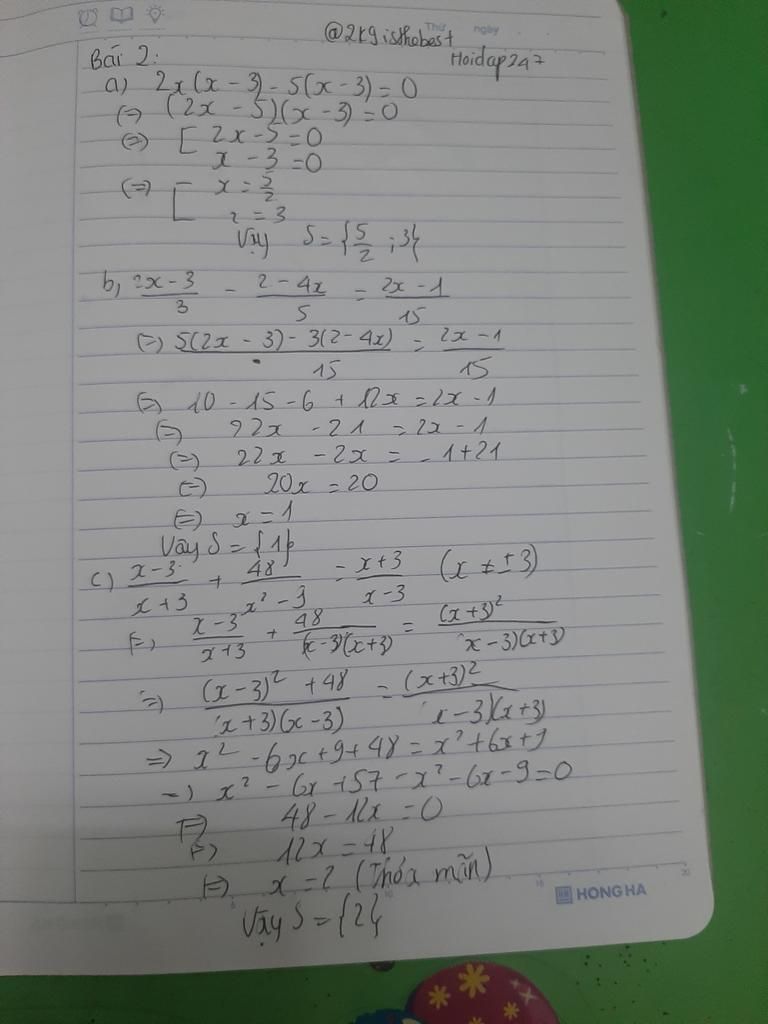 Thứ ngày
@2k9isthebest
Hoidap247
Bài 2:
a) 2x(x - 3) - 5(x - 3) = 0
(=) (2x - 5)(x - 3) = 0
(=) [ 2x - 5 = 0
x - 3 = 0
(=) [ x = 5/2
x = 3
Vậy S = {5/2 ; 3}
b, (2x - 3)/3 - (2 - 4x)/5 = (2x - 1)/15
(=) (5(2x - 3) - 3(2 - 4x))/15 = (2x - 1)/15
(=) 10 - 15 - 6 + 12x = 2x - 1
(=) 22x - 21 = 2x - 1
(=) 22x - 2x = - 1 + 21
(=) 20x = 20
(=) x = 1
Vậy S = {1}
c) (x - 3)/(x + 3) + 48/(x² - 9) = (x + 3)/(x - 3) (x ≠ ±3)
(=) (x - 3)/(x + 3) + 48/((x - 3)(x + 3)) = (x + 3)²/((x - 3)(x + 3))
=) ((x - 3)² + 48)/((x + 3)(x - 3)) = (x + 3)²/((x - 3)(x + 3))
=) x² - 6x + 9 + 48 = x² + 6x + 9
=) x² - 6x + 57 - x² - 6x - 9 = 0
(=) 48 - 12x = 0
(=) 12x = 48
(=) x = 2 (Thỏa mãn)
Vậy S = {2}
HONG HA